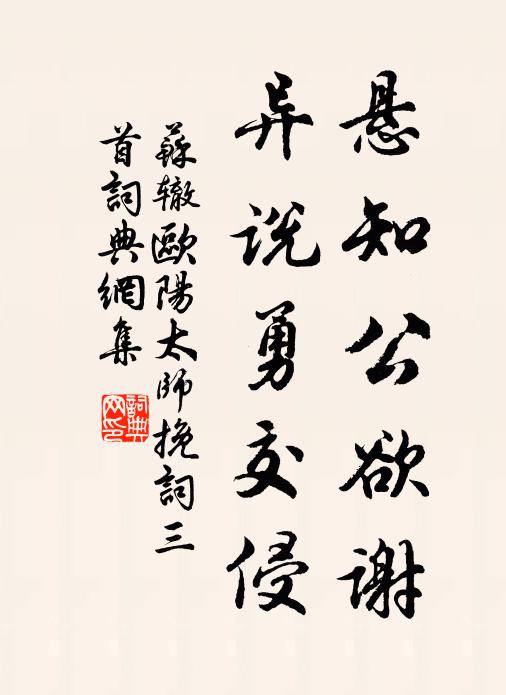 悬知公欲谢
异说勇交侵
蘇辙歐陽太师挽詞三
首詞典網集
詞典
网印